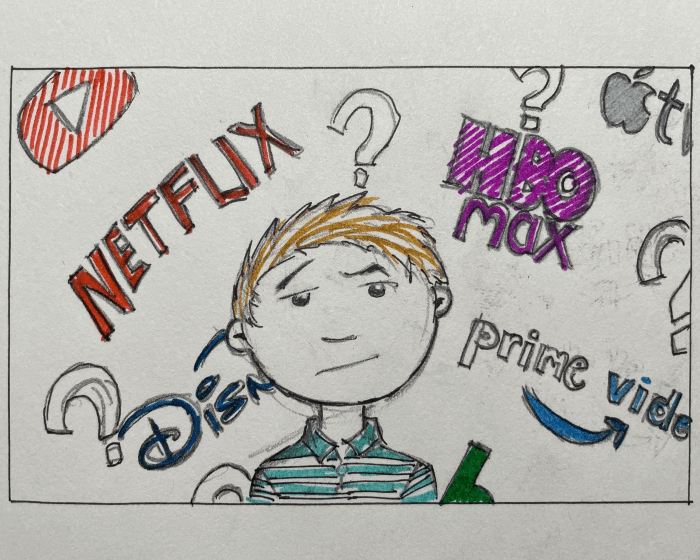 ?
t
NETFLIX
?
HBO
max
?
prime vide
?
Disn